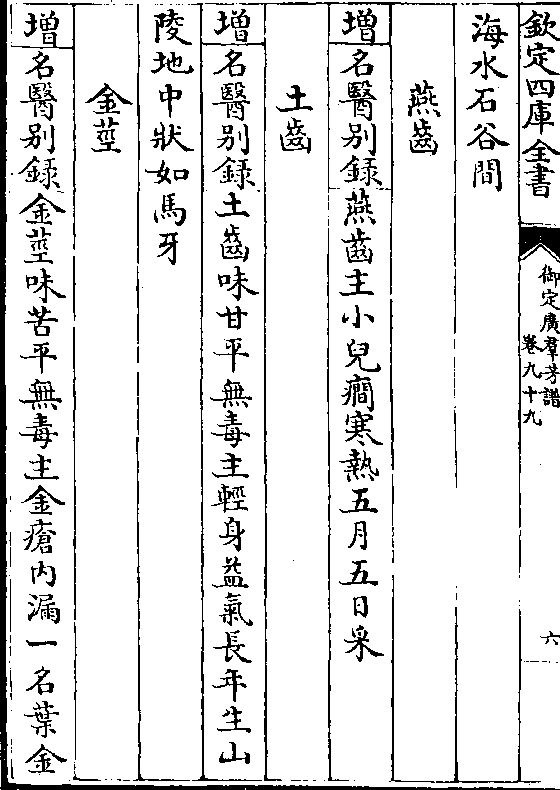 欽定四庫全書
御定廣羣芳譜
卷九十九
六
海水石谷間
燕齒
增名醫别録燕齒主小兒癎寒熱五月五日采
土齒
增名醫别録土齒味甘平無毒主輕身益氣長年生山
陵地中狀如馬牙
金莖
增名醫别録金莖味苦平無毒主金瘡内漏一名葉金